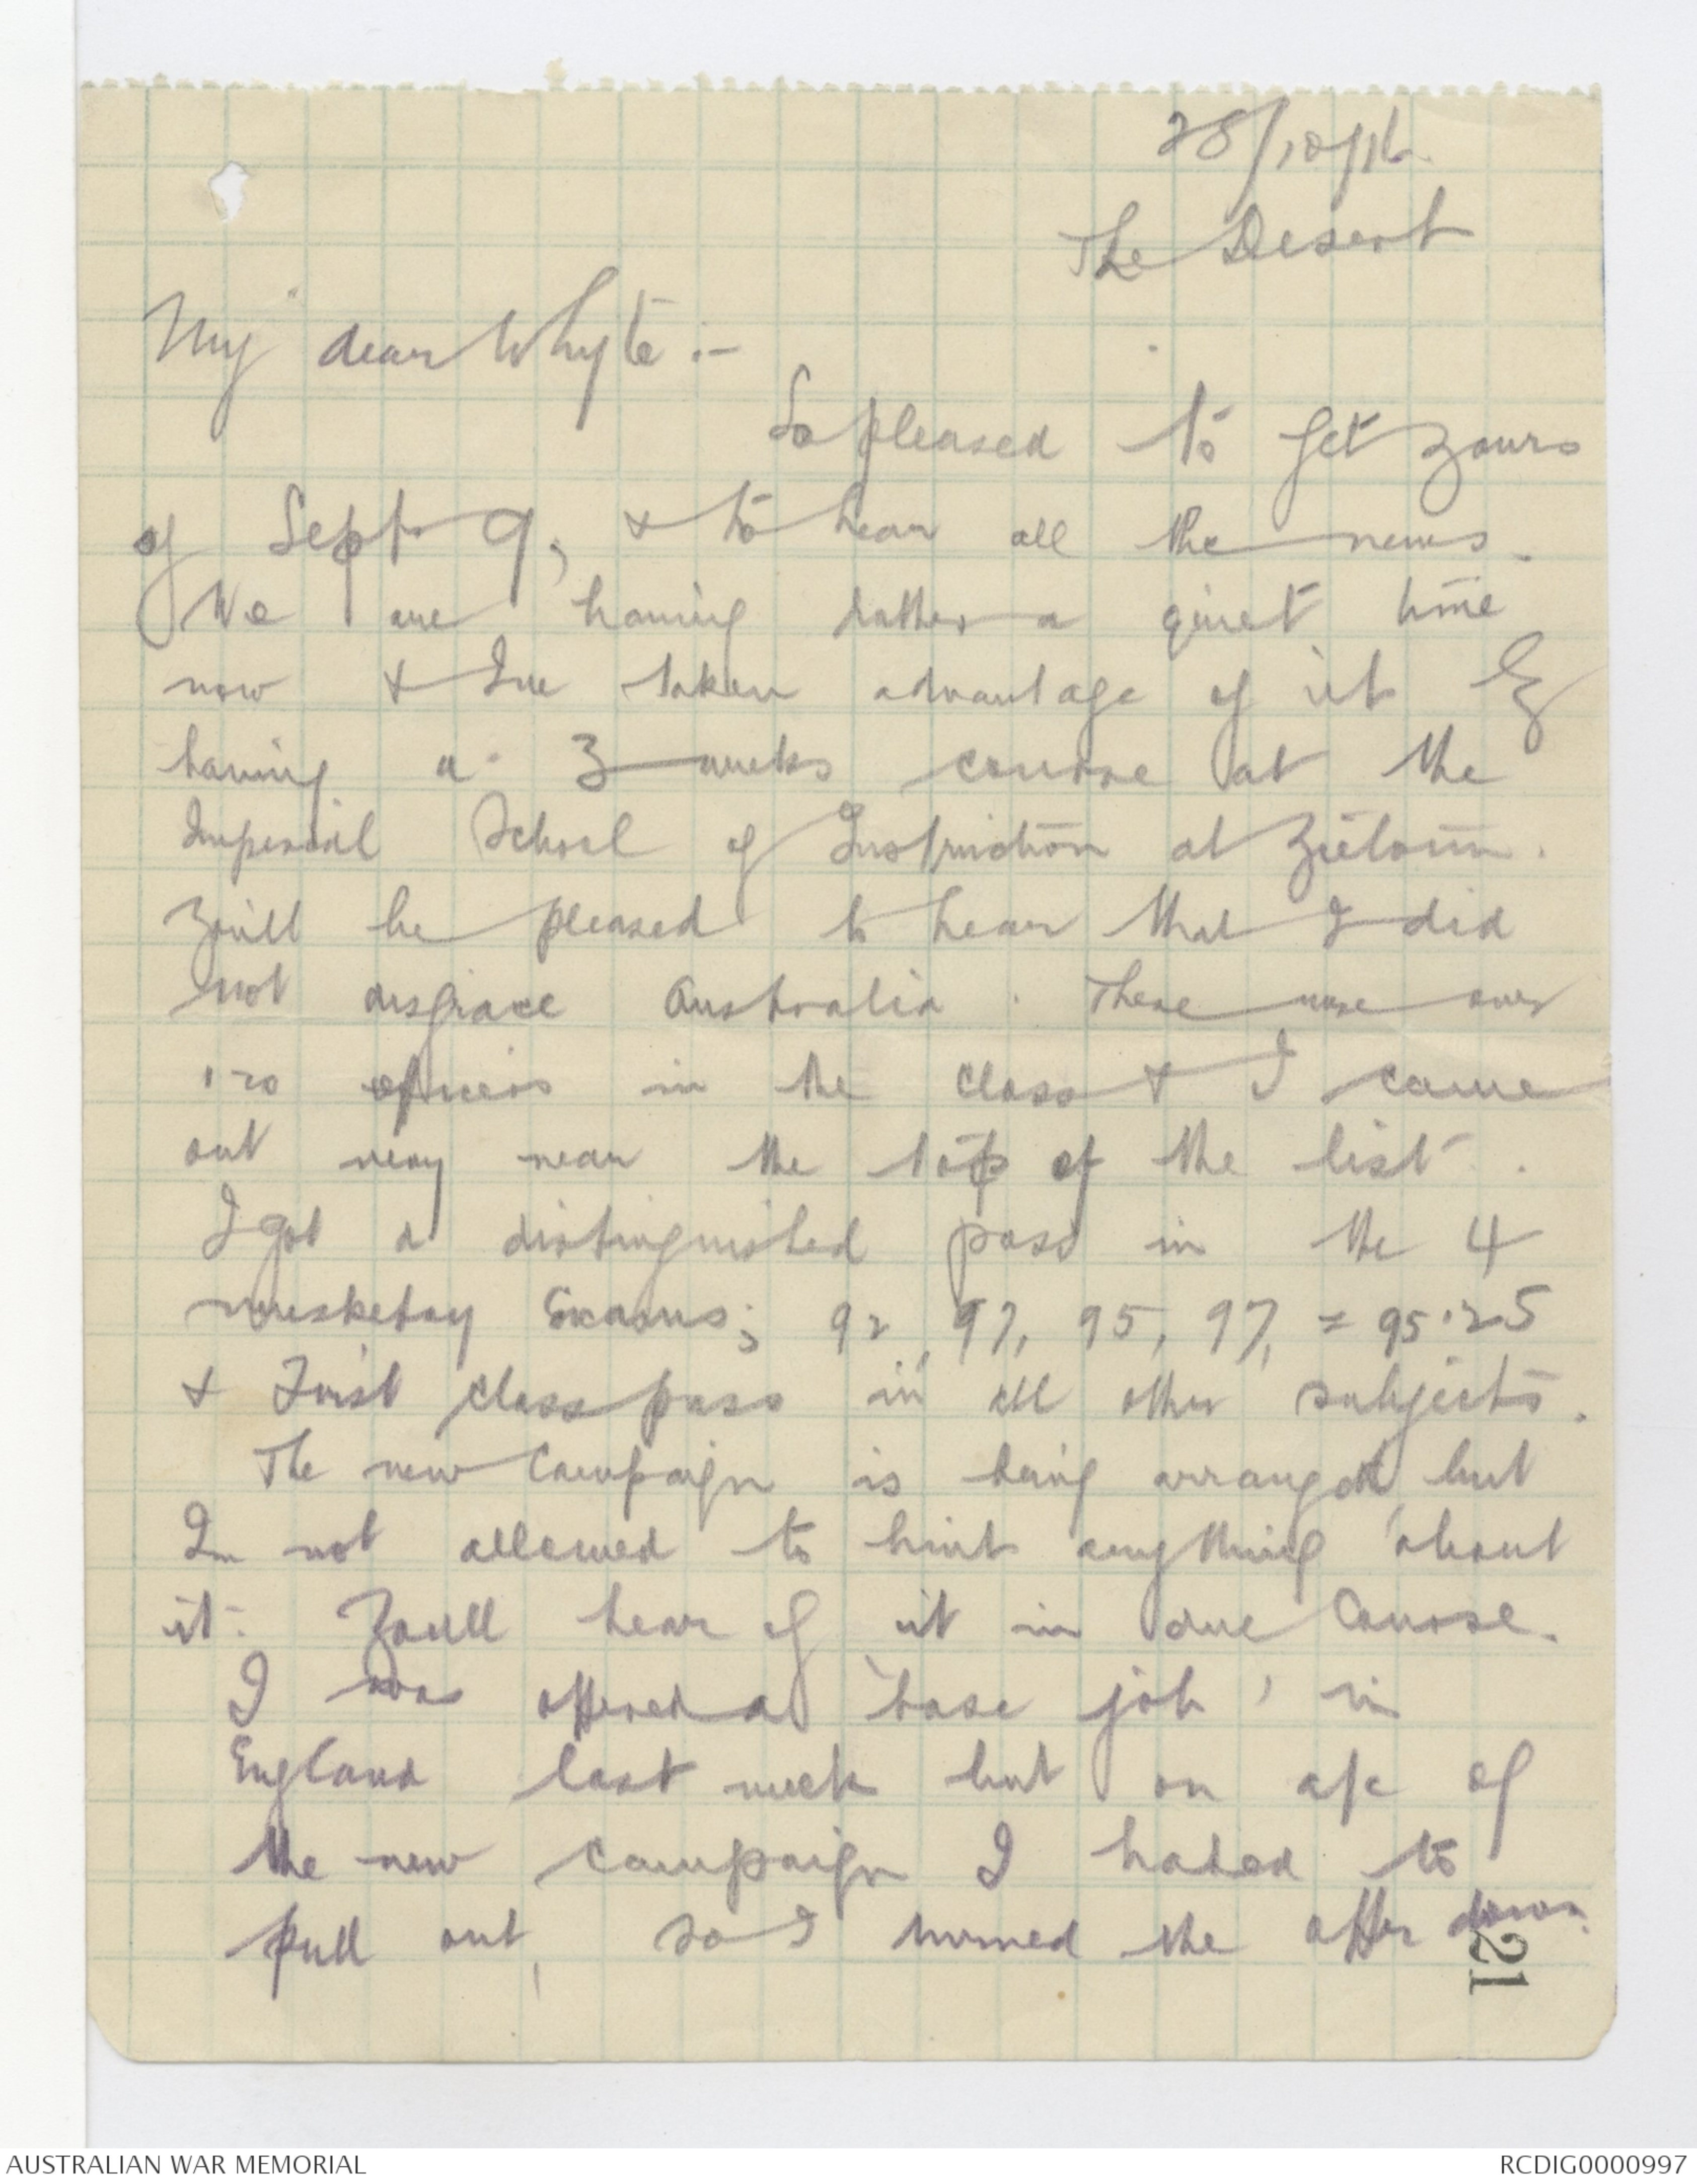 28/10/16.
The Desert
My dear Whyte :-
So pleased to get yours
of Sept 9, & to hear all the news.
We are having rather a quiet time
now & Ive taken advantage of it by
having a 3 weeks course at the
Imperial School of Instruction at Zeitoun.
You'll be pleased to hear that I did
not disgrace Australia. There were over
120 officers in the class & I came
out very near the top of the list.
I got a distinguished pass in the 4
musketry Exams; 92, 97, 95, 97, = 95.25
& First class pass in all other subjects.
The new Campaign is being arranged, but
Im not allowed to hint anything about
it. You'll hear of it in due Course.
I was offered a 'base job' in
England last week but on a/c of
the new campaign I hated to
pull out, so I turned the offer down.
21
AUSTRALIAN WAR MEMORIAL
RCDIG0000997